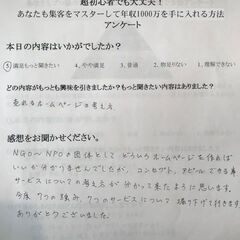 超初心者でも大丈夫!
あなたも集客をマスターして年収1000万を手に入れる方法
アンケート
本日の内容はいかがでしたか?
⑤満足もっと聞きたい 4、やや満足 3、普通 2、物足りない 1、理解できない
どの内容がもっとも興味を引きましたか?もっと聞きたい内容はありました?
売れるホームページの考え方
感想をお聞かせください。
NGO〜NPOの団体としてどういうホームページを作れば
いいか分かりませんでしたが、コンセプト、アピールできる専
サービスについての考え方が分かって来たように思います。
今後7つの強み、7つのサービスについて掘り下げて行きます
ありがとうございました。